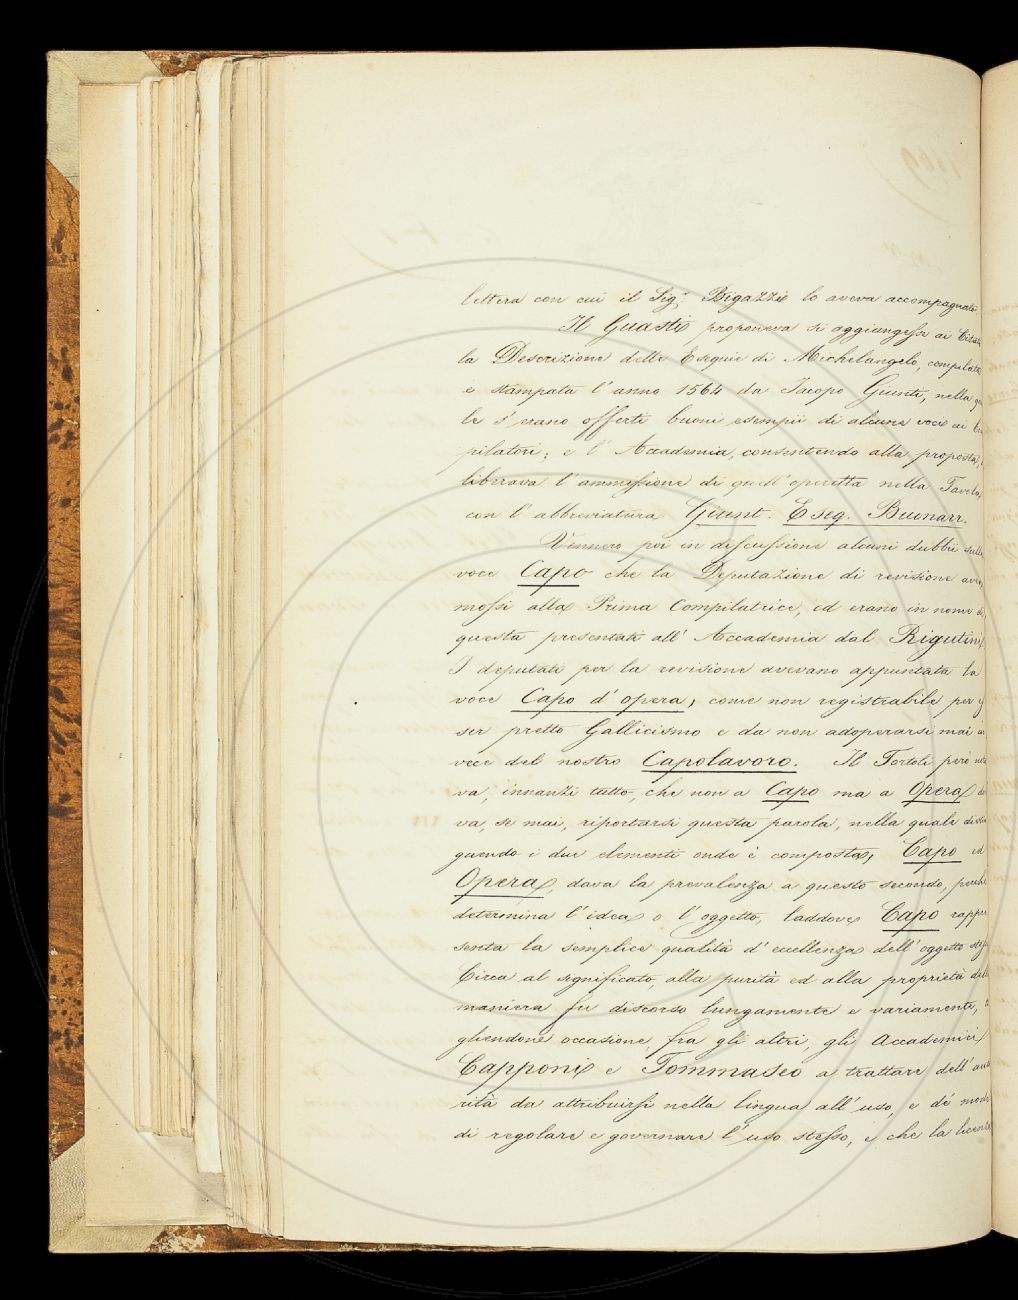 lettera con cui il Sig.r Bigazzi lo aveva accompagnato.
Il Guasti proponeva si aggiungesse ai Citati
la Descrizione delle Esequie di Michelangelo, compilata
e stampata l'anno 1564 da Jacopo Giunti, nella qua
le s'erano offerti buoni esempii di alcune voci ai Com
pilatori; e l'Accademia, consentendo alla proposta,
liberava l'ammessione di quell'operetta nella Tavola,
con l'abbreviatura Giunt. Eseq. Buonarr.
Vennero poi in discussione alcuni dubbii sulla
voce Capo che la Deputazione di revisione avea
mossi alla Prima Compilatrice, ed erano in nome di
questa presentati all'Accademia dal Rigutini.
I deputati per la revisione avevano appuntata la
voce Capo d'opera, come non registrabile per es
ser pretto Gallicismo e da non adoperarsi mai in
vece del nostro Capolavoro. Il Tortoli però
va, innanzi tutto, che non a Capo ma a Opera do
va, se mai, riportarsi questa parola, nella quale distin
guendo i due elementi onde è composta, Capo ed
Opera, dava la prevalenza a questo secondo, perchè
determina l'idea o l'oggetto, laddove Capo rappre
senta la semplice qualità d'eccellenza dell'oggetto stesso.
Circa al significato, alla purità ed alla proprietà della
maniera fu discorso lungamente e variamente,
gliendone occasione, fra gli altri, gli Accademici
Capponi e Tommaseo a trattare dell'auto
rità da attribuirsi nella lingua all'uso, e de' modi
di regolare e governare l'uso stesso, e che la licenza